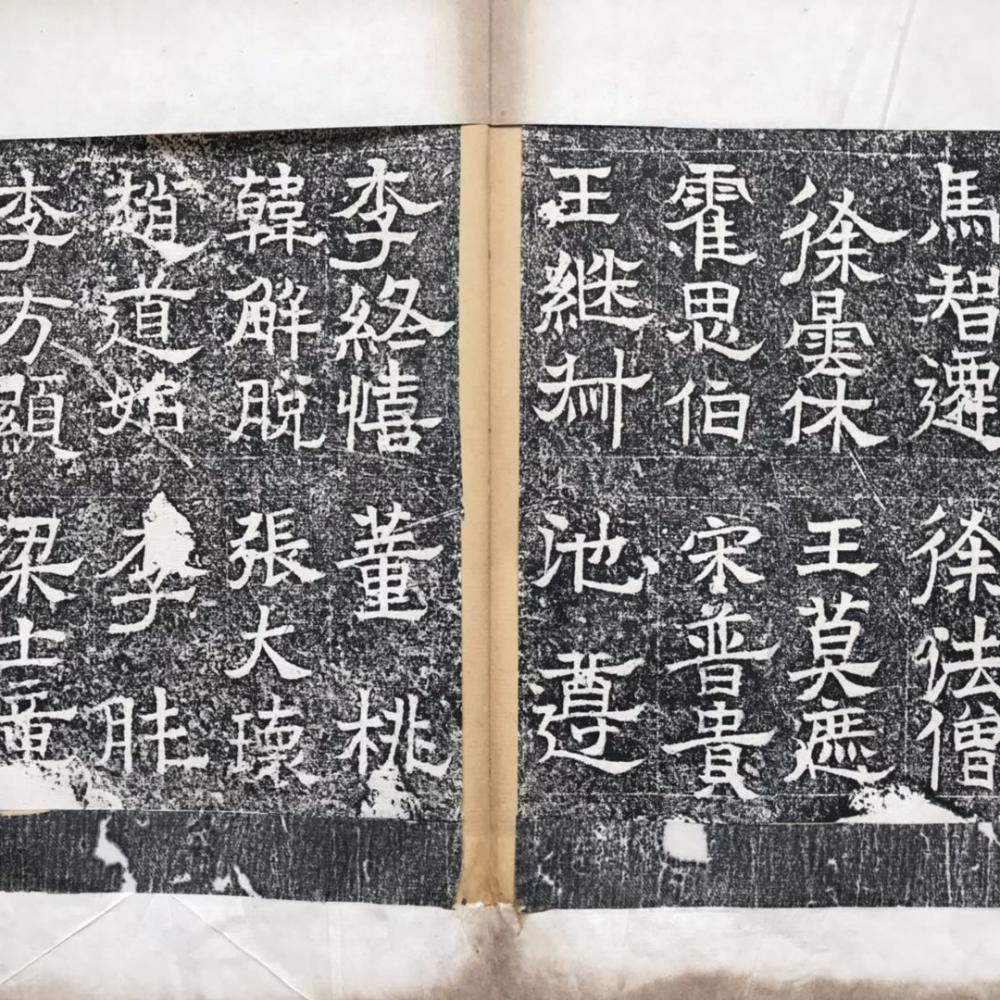 馬智遷 徐法僧
徐曇休 王莫遮
霍思伯 宋普貴
王継 池遵
李終憘 董桃
韓解脫 張大
趙道始 李肚
李方顯 梁士童